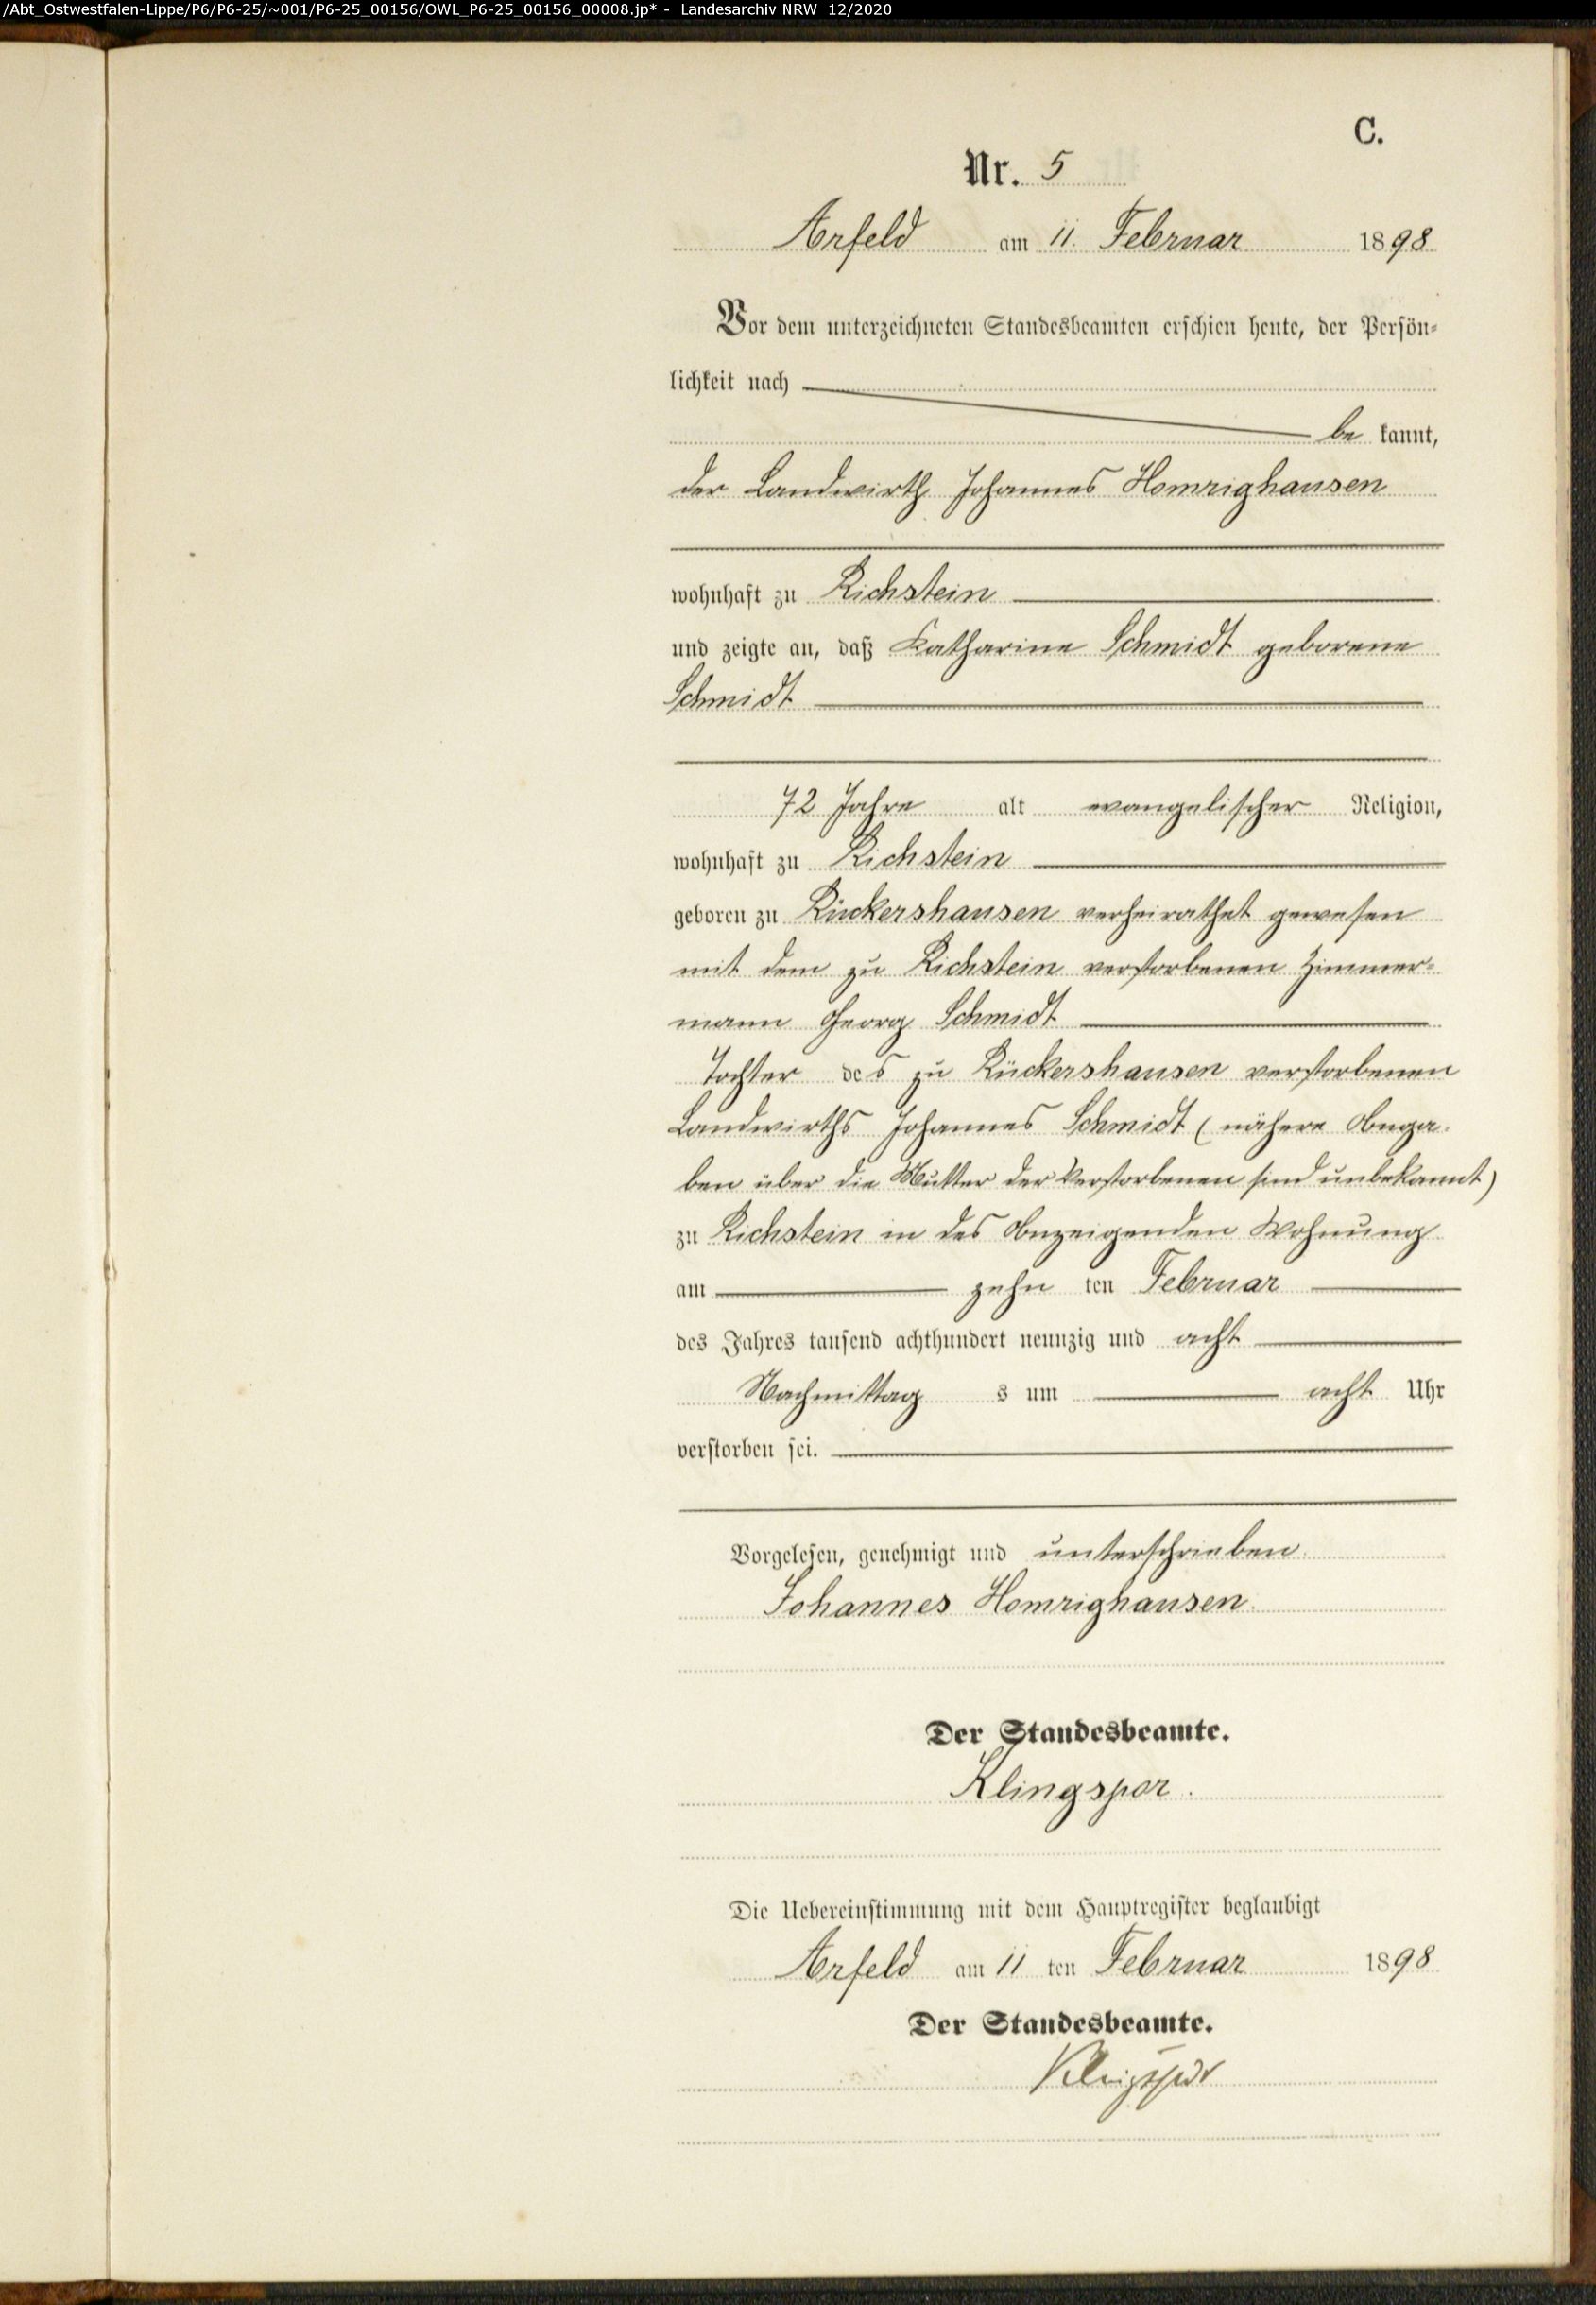 /Abt_Ostwestfalen-Lippe/P6/P6-25/~001/P6-25_00156/OWL_P6-25_00156_00008.jp* - Landesarchiv NRW 12/2020
C.
Nr. 5
Arfeld am 11. Februar 1898
Vor dem unterzeichneten Standesbeamten erschien heute, der Persön-
lichkeit nach
be kannt,
der Landwirth Johannes Homrighausen
wohnhaft zu Richstein
und zeigte an, daß Katharine Schmidt geborene
Schmidt
72 Jahre alt evangelischer Religion,
wohnhaft zu Richstein
geboren zu Rückershausen verheirathet gewesen
mit dem zu Richstein verstorbenen Zimmer-
mann Georg Schmidt
Tochter des zu Rückershausen verstorbenen
Landwirths Johannes Schmidt (nähere Anga-
ben über die Mutter der Verstorbenen sind unbekannt)
zu Richstein in des Anzeigenden Wohnung
am zehn ten Februar
des Jahres tausend achthundert neunzig und acht
Nachmittag s um acht Uhr
verstorben sei.
Vorgelesen, genehmigt und unterschrieben
Johannes Homrighausen.
Der Standesbeamte.
Klingspor.
Die Uebereinstimmung mit dem Hauptregister beglaubigt
Arfeld am 11 ten Februar 1898
Der Standesbeamte.
Klingspor